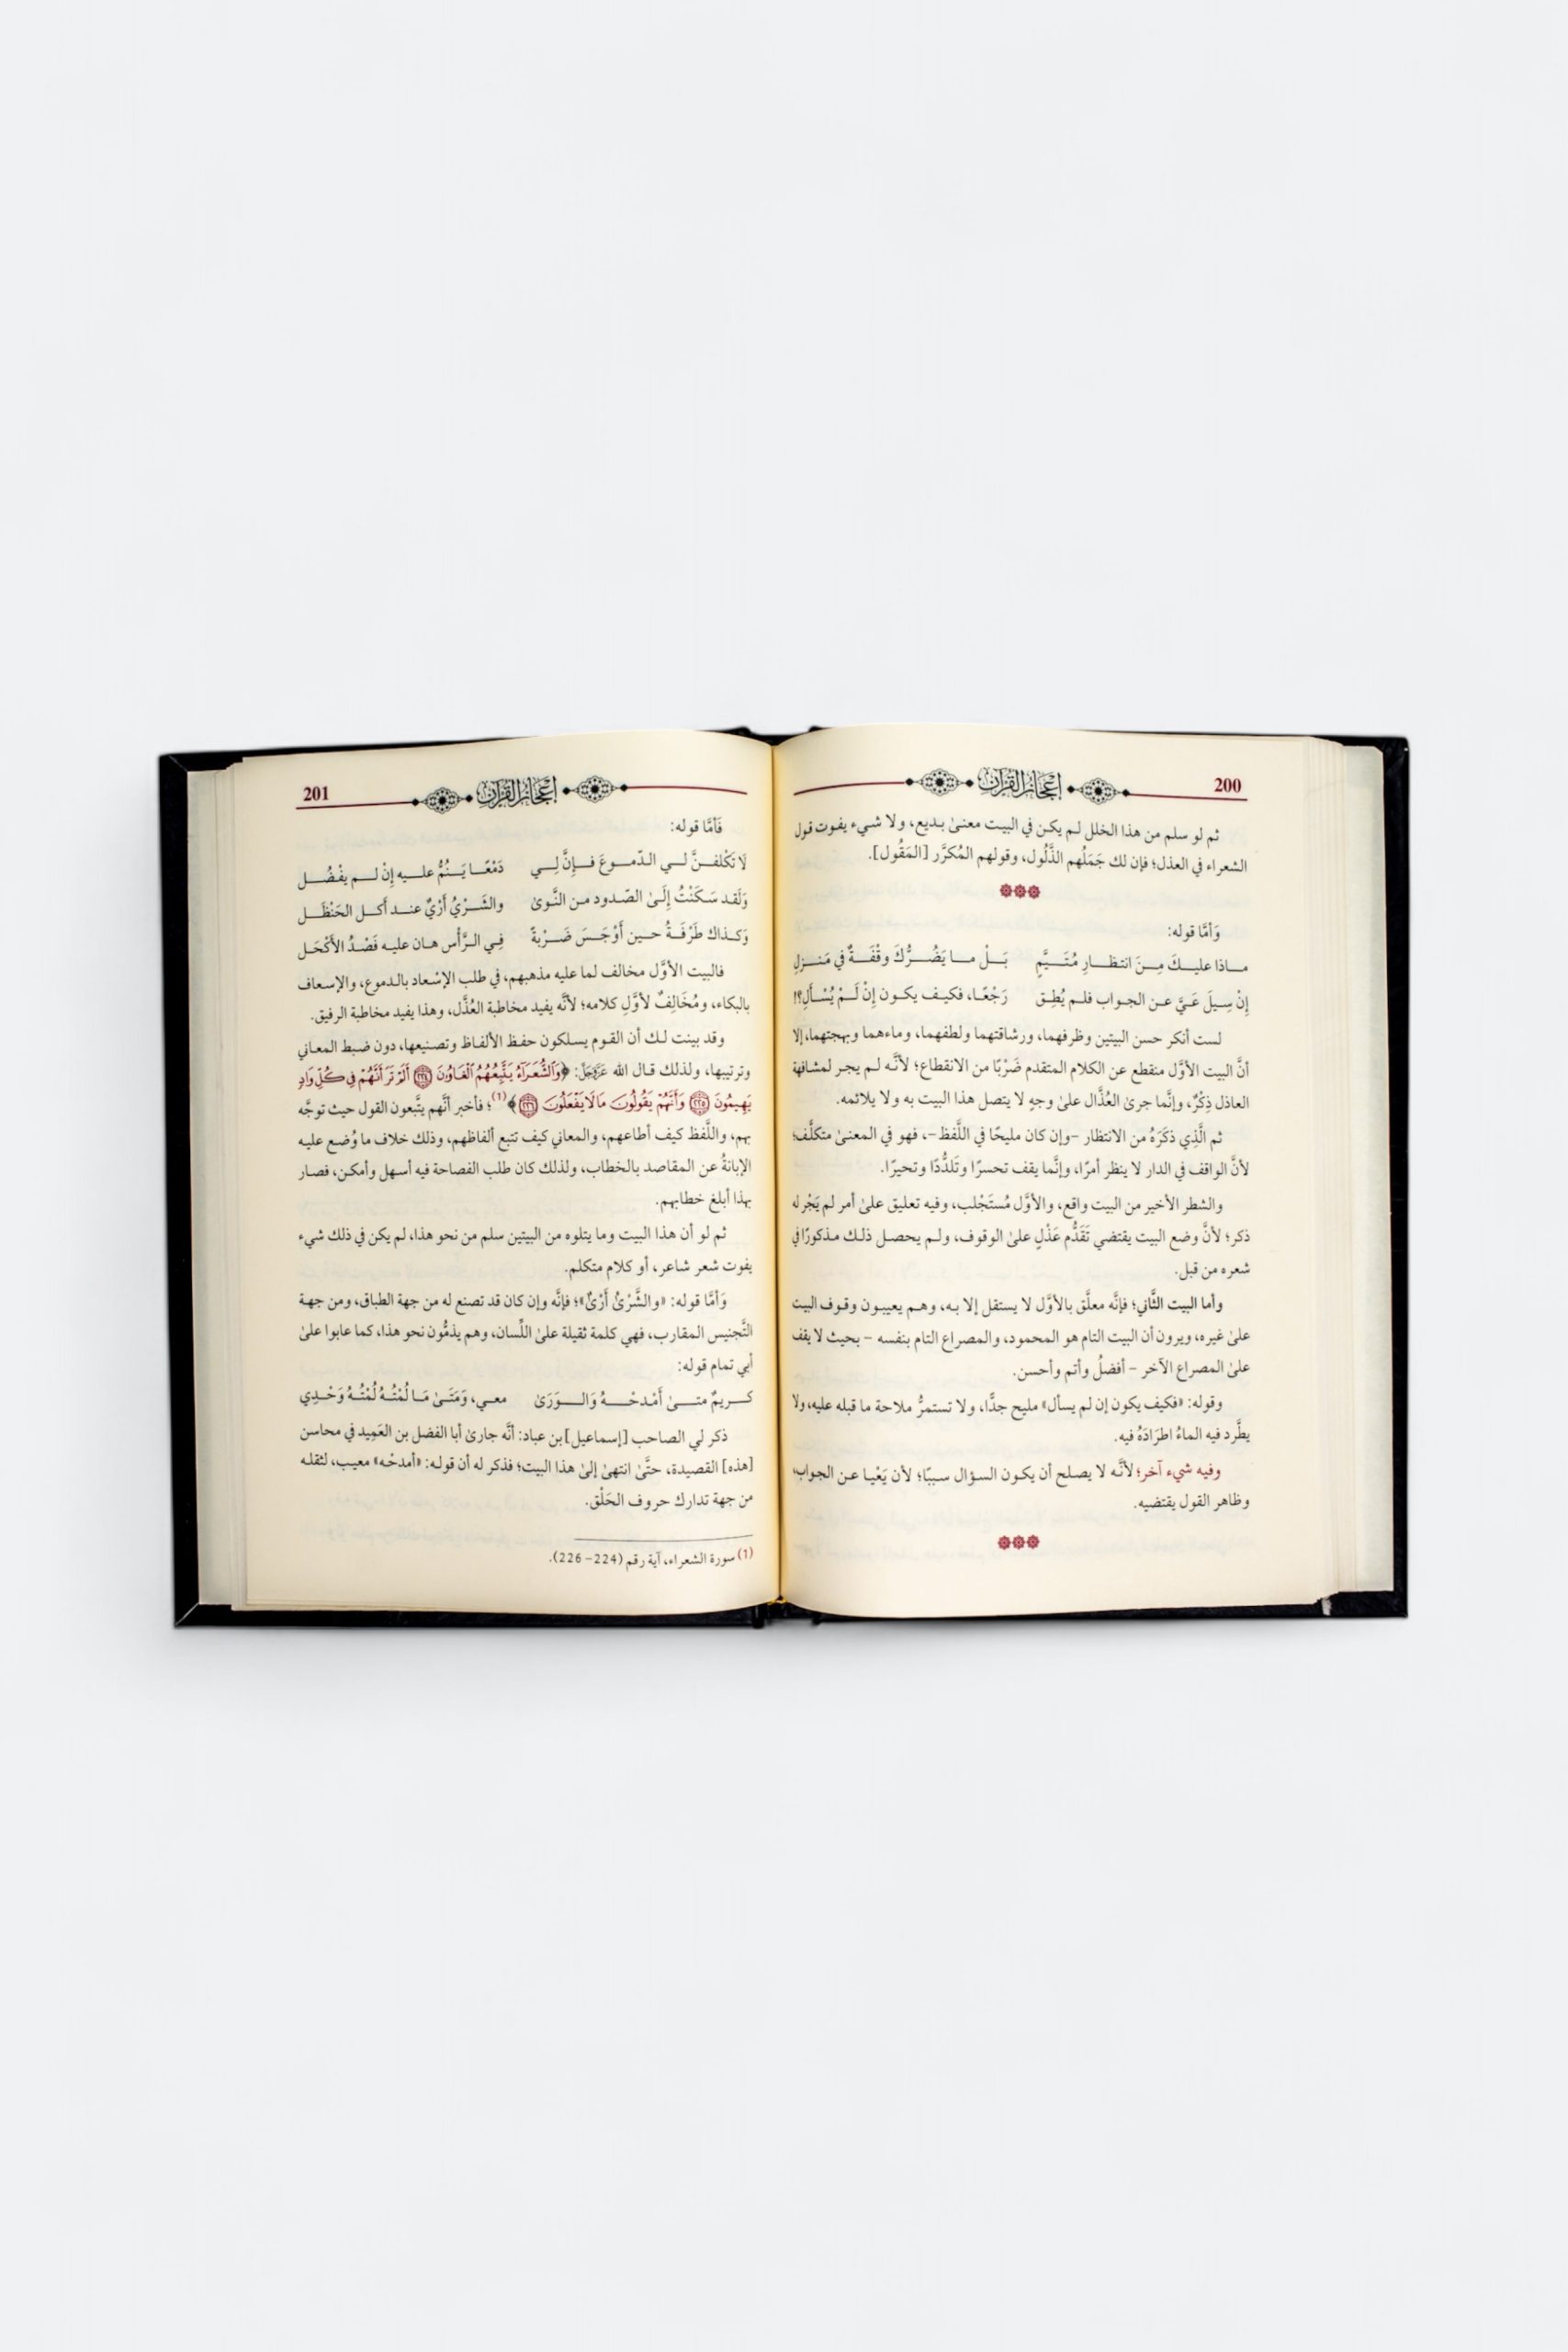 200
إعجاز القرآن
ثم لو سلم من هذا الخلل لم يكن في البيت معنىٰ بديع، ولا شيء يفوت قول
الشعراء في العذل؛ فإن لك جَمَلُهم الذَّلُول، وقولهم المُكرَّر [المَقُول].
وَأمَّا قوله:
ماذا عليكَ مِنَ انتظارِ مُتَيَّمٍ بَلْ ما يَضُرُّكَ وقْفَةٌ في مَنزِلِ
إِنْ سِيلَ عَيَّ عن الجواب فلم يُطِق رَجْعًا، فكيف يكون إِنْ لَمْ يُسْأَلِ؟!
لست أنكر حسن البيتين وظرفهما، ورشاقتهما ولطفهما، وماءهما وبهجتهما، إلا
أنَّ البيت الأوَّل منقطع عن الكلام المتقدم ضَرْبًا من الانقطاع؛ لأنَّه لم يجر لمشافهة
العاذل ذِكْرٌ، وإنَّما جرىٰ العُذَّال علىٰ وجهٍ لا يتصل هذا البيت به ولا يلائمه.
ثم الَّذِي ذكَرَهُ من الانتظار -وإن كان مليحًا في اللَّفظ-، فهو في المعنىٰ متكلَّف؛
لأنَّ الواقف في الدار لا ينظر أمرًا، وإنَّما يقف تحسرًا وتَلدُّدًا وتحيرًا.
والشطر الأخير من البيت واقع، والأوَّل مُستَجْلب، وفيه تعليق علىٰ أمر لم يَجْرِ له
ذكر؛ لأنَّ وضع البيت يقتضي تَقَدُّم عَذْلٍ علىٰ الوقوف، ولم يحصل ذلك مذكورًا في
شعره من قبل.
وأما البيت الثَّاني؛ فإنَّه معلَّق بالأوَّل لا يستقل إلا به، وهم يعيبون وقوف البيت
علىٰ غيره، ويرون أن البيت التام هو المحمود، والمصراع التام بنفسه - بحيث لا يقف
علىٰ المصراع الآخر - أفضلُ وأتم وأحسن.
وقوله: «فكيف يكون إن لم يسأل» مليح جدًّا، ولا تستمرُّ ملاحة ما قبله عليه، ولا
يطَّرد فيه الماءُ اطرَادَهُ فيه.
وفيه شيء آخر؛ لأنَّه لا يصلح أن يكون السؤال سببًا؛ لأن يَعْيا عن الجواب،
وظاهر القول يقتضيه.
201
إعجاز القرآن
فَأمَّا قوله:
لَا تَكْلفنَّ لي الدّموعَ فإِنَّ لِي دَمْعًا يَنُمُّ عليه إِنْ لم يفْضُل
وَلَقد سَكَنْتُ إِلَىٰ الصّدود من النَّوىٰ والشَرْيُ أَرْيٌ عند أَكل الحَنْظَل
وَكذاك طَرْفَةُ حين أَوْجَسَ ضَرْبةً فِي الرَّأْس هان عليه فَصْدُ الأَكْحَل
فالبيت الأوَّل مخالف لما عليه مذهبهم، في طلب الإسْعاد بالدموع، والإسعاف
بالبكاء، ومُخَالِفٌ لأوَّلِ كلامه؛ لأنَّه يفيد مخاطبة العُذَّل، وهذا يفيد مخاطبة الرفيق.
وقد بينت لك أن القوم يسلكون حفظ الألفاظ وتصنيعها، دون ضبط المعاني
وترتيبها، ولذلك قال الله عَزَّوَجَلَّ: ﴿وَٱلشُّعَرَآءُ يَتَّبِعُهُمُ ٱلْغَاوُۥنَ ٢٢٤ أَلَمْ تَرَ أَنَّهُمْ فِى كُلِّ وَادٍ
يَهِيمُونَ ٢٢٥ وَأَنَّهُمْ يَقُولُونَ مَا لَا يَفْعَلُونَ ٢٢٦﴾(١)؛ فأخبر أنَّهم يتَّبعون القول حيث توجَّه
بهم، واللَّفظ كيف أطاعهم، والمعاني كيف تتبع ألفاظهم، وذلك خلاف ما وُضع عليه
الإبانةُ عن المقاصد بالخطاب، ولذلك كان طلب الفصاحة فيه أسهل وأمكن، فصار
بهذا أبلغ خطابهم.
ثم لو أن هذا البيت وما يتلوه من البيتين سلم من نحو هذا، لم يكن في ذلك شيء
يفوت شعر شاعر، أو كلام متكلم.
وَأمَّا قوله: «والشَّرْيُ أَرْيٌ»؛ فإنَّه وإن كان قد تصنع له من جهة الطباق، ومن جهة
التَّجنيس المقارب، فهي كلمة ثقيلة علىٰ اللِّسان، وهم يذمُّون نحو هذا، كما عابوا علىٰ
أبي تمام قوله:
كريمٌ متىٰ أَمْدحْهُ وَالوَرَىٰ معي، وَمَتَىٰ مَا لُمْتُهُ لُمْتُهُ وَحْدِي
ذكر لي الصاحب [إسماعيل] بن عباد: أنَّه جارىٰ أبا الفضل بن العَمِيد في محاسن
[هذه] القصيدة، حتَّىٰ انتهىٰ إلىٰ هذا البيت؛ فذكر له أن قوله: «أمدحْه» معيب، لثقله
من جهة تدارك حروف الحَلْق.
(١) سورة الشعراء، آية رقم (224-226).